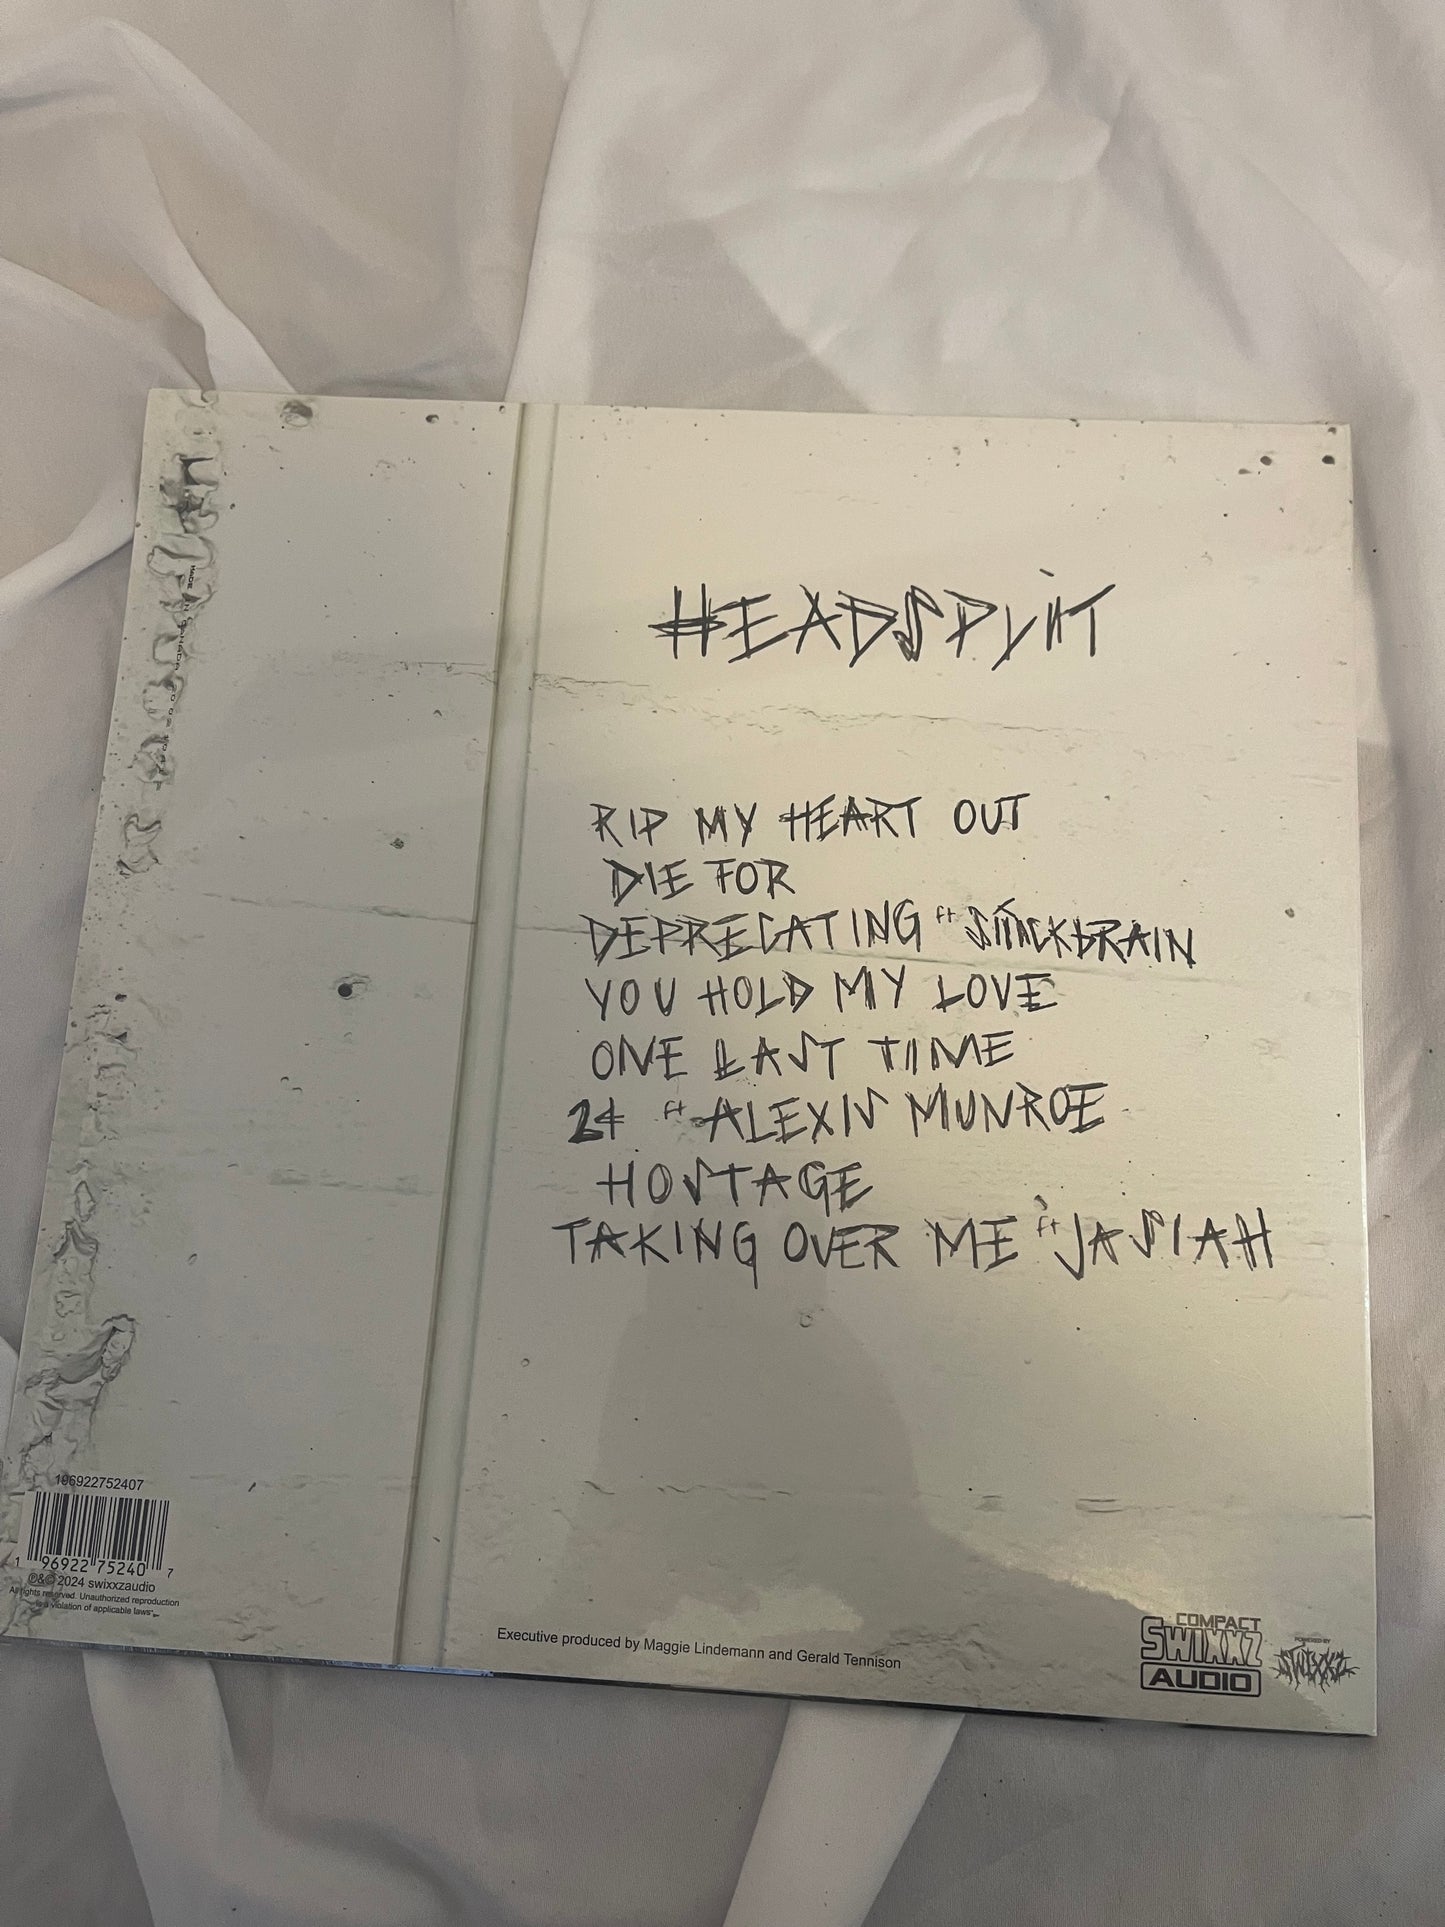 HEADSPLIT
RIP MY HEART OUT
DIE FOR
DEPRECATING ft SIIICKBRAIN
YOU HOLD MY LOVE
ONE LAST TIME
24 ft ALEXIS MUNROE
HOSTAGE
TAKING OVER ME ft JASIAH
196922752407
1 96922 75240 7
℗&© 2024 swixxzaudio
All rights reserved. Unauthorized reproduction
is a violation of applicable laws.
Executive produced by Maggie Lindemann and Gerald Tennison
COMPACT
SWIXXZ
AUDIO
POWERED BY
SWIXXZ